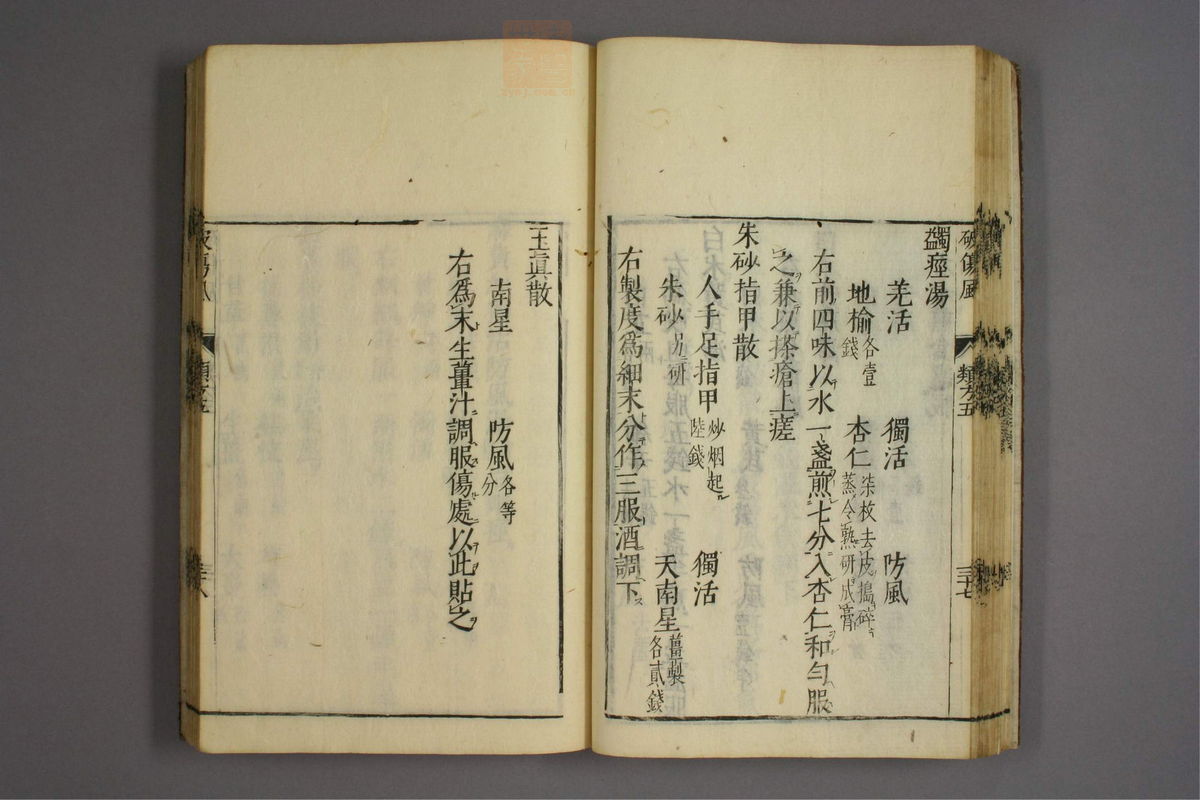 破傷風 類方五 三十七
蠲痙湯
羌活 獨活 防風
地榆各壹錢 杏仁柒枚去皮搗碎蒸令熟研成膏
右前四味以水一盞煎七分入杏仁和勻服
之兼以搽瘡上瘥
朱砂指甲散
人手足指甲炒烟起陸錢 獨活
朱砂另研 天南星薑製各貳錢
右製度爲細末分作三服酒調下
玉眞散
南星 防風各等分
右爲末生薑汁調服傷處以此貼之